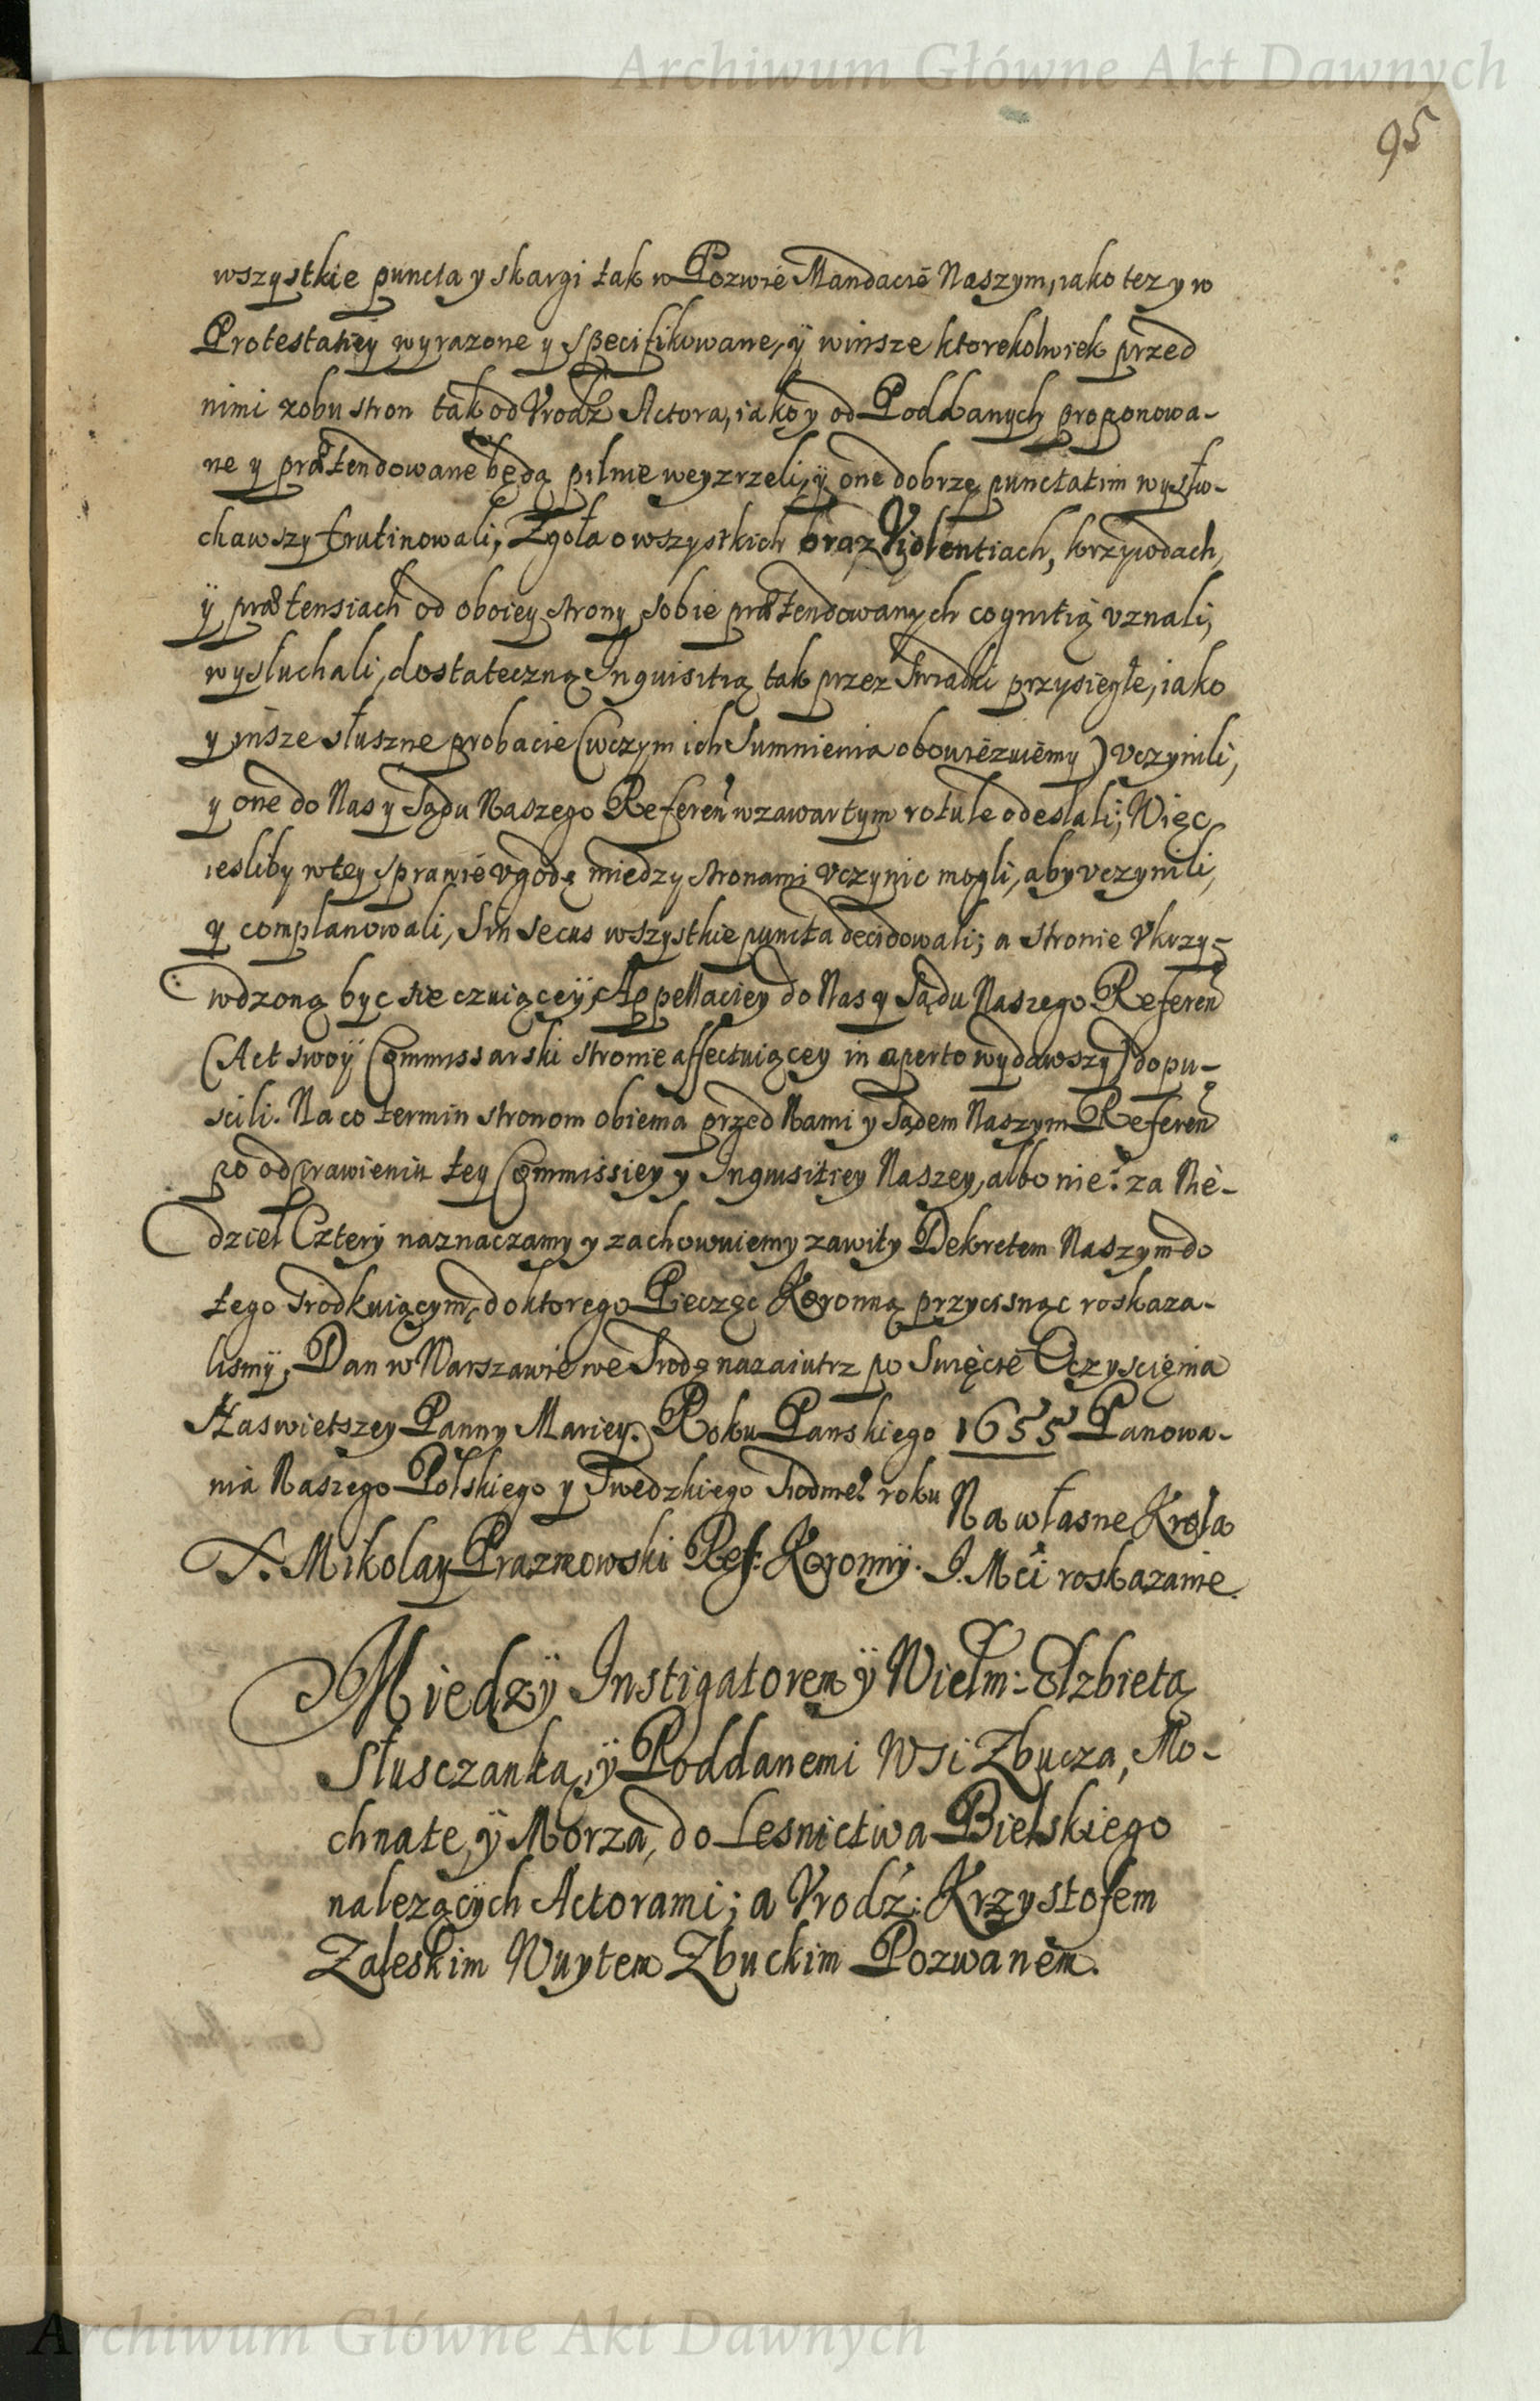 Archiwum Główne Akt Dawnych
95
wszystkie puncta y skargi tak w Pozwie Mandacie Naszym, iako tez y w
Protestatiey wyrazone y specifikowane, ÿ winsze ktorekolwiek przed
nimi zobu stron tak od Vrodz Actora, iako y od Poddanych proponowa-
ne y prætendowane będą pilnie weyzrzeli, ÿ one dobrze punctatim wysłu-
chawszy scrutinowali, Zgoła o wszystkich oraz Violentiach, krzywdach,
ÿ prætensiach od oboiey strony sobie prætendowanych cognitią vznali,
wysłuchali, dostateczną Inquisitią tak przez Swiadki przysiegłe, iako
y insze słuszne probacie (wczym ich Sumnienia obowiézuiemy) vczynili,
y one do Nas y Sądu Naszego Referen wzawartym rotule odeslali; Więc
iesliby wtey sprawie vgodę miedzy stronami vczynic mogli, aby vczynili,
y complanowali, Sin secus wszystkie puncta decidowali; a stronie Vkrzy-
wdzoną byc sie czuiącey, Appellaciey do Nas y Sądu Naszego Referen
(Act swoÿ Commissarski stronie affectuiącey in aperto wydawszy) dopu-
scili. Na co termin stronom obiema przed Nami y Sądem Naszym Referen
po odprawieniu tey Commissiey y Inquisitiey Naszey, albo nie: za Nie-
dziel Cztery naznaczamy y zachowuiemy zawity Dekretem Naszym do
tego srodkuiącym, do ktorego Pieczęc Koronną przycisnąc roskaza-
lismÿ. Dan w Warszawie we Srodę nazaiutrz po Swięcie Oczyscięnia
Naswietszey Panny Mariey. Roku Panskiego 1655 Panowa-
nia Naszego Polskiego y Swedzkiego Siodme° roku
Na własne Krola
X. Mikolay Prazmowski Ref: Koronnÿ. J. Mci roskazanie.
Miedzÿ Instigatorem ÿ Wielm: Elzbietą
Słusczanką, ÿ Poddanemi Wsi Zbucza, Mo-
chnate, ÿ Morza, do Lesnictwa Bielskiego
nalezącÿch Actorami; a Vrodz: Krzystofem
Zaleskim Wuytem Zbuckim Pozwanem.
Archiwum Główne Akt Dawnych